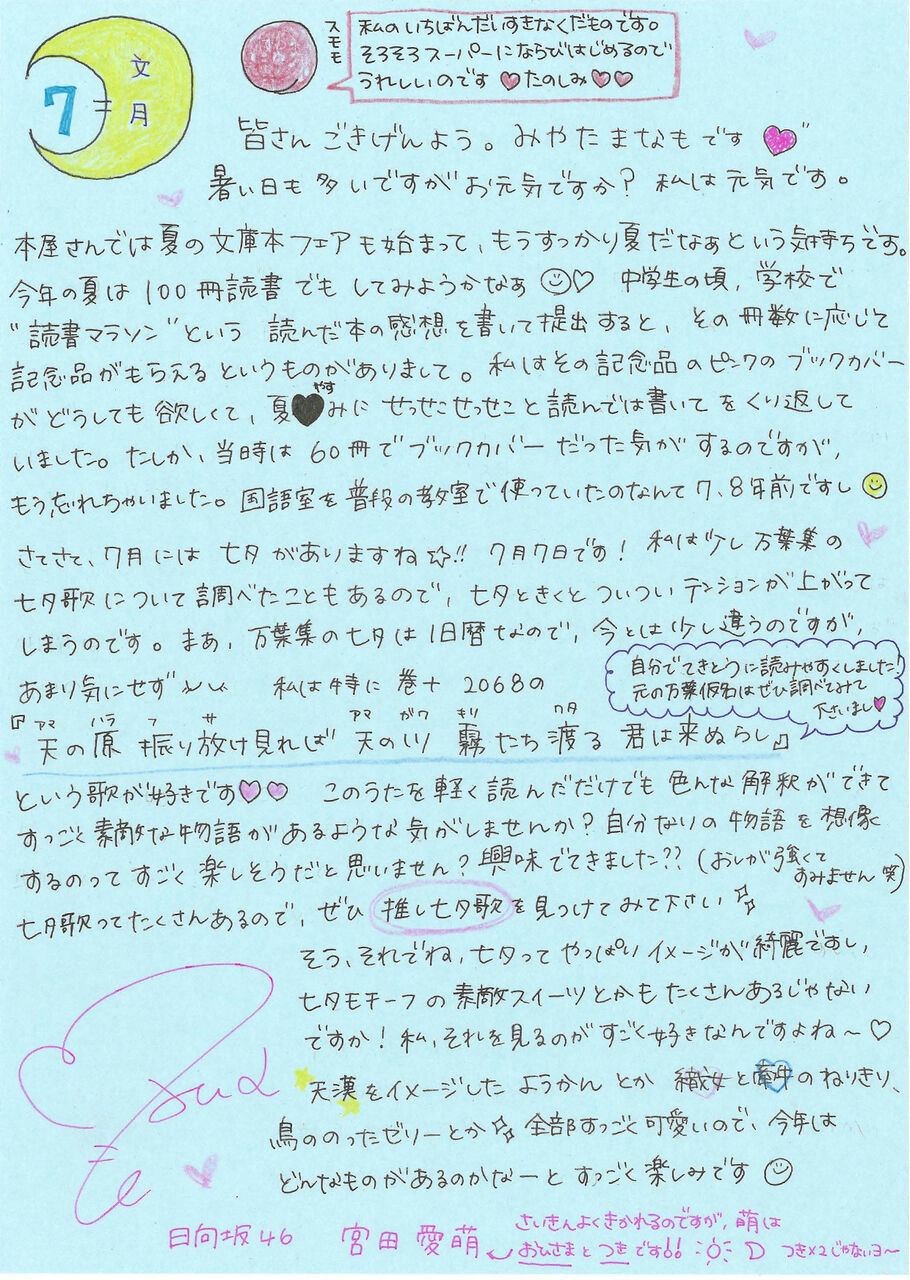 文月
7=
スモモ
私のいちばんだいすきなくだものです。
そろそろスーパーにならびはじめるので
うれしいのです♥たのしみ♥♥
皆さんごきげんよう。みやたまなもです♥"
暑い日も多いですがお元気ですか?私は元気です。
本屋さんでは夏の文庫本フェアも始まって、もうすっかり夏だなぁという気持ちです。
今年の夏は100冊読書でもしてみようかなぁ☺♡ 中学生の頃、学校で
"読書マラソン"という 読んだ本の感想を書いて提出すると、その冊数に応じて
記念品がもらえるというものがありまして。私はその記念品のピンクのブックカバー
がどうしても欲しくて、夏♥みにせっせこせっせこと読んでは書いてをくり返して
やす
いました。たしか、当時は60冊でブックカバーだった気がするのですが、
もう忘れちゃいました。国語室を普段の教室で使っていたのなんて7、8年前ですし☺
さてさて、7月には七夕がありますね☆!! 7月7日です!私は少し万葉集の
七夕歌について調べたこともあるので、七夕ときくとついついテンションが上がって
しまうのです。まあ、万葉集の七夕は旧暦なので、今とは少し違うのですが、
あまり気にせず〜 私は特に巻十 2068の
自分でてきとうに読みやすくしました!
元の万葉仮名はぜひ調べてみて
下さいまし♥
アマ ハラ フ サ アマ ガワ キリ ワタ
『天の原 振り放け見れば 天の川 霧たち渡る 君は来ぬらし』
という歌が好きです♥♥ このうたを軽く読んだだけでも色んな解釈ができて
すっごく素敵な物語があるような気がしませんか?自分なりの物語を想像
するのってすごく楽しそうだと思いません?興味でてきました??(おしが強くて
すみません笑)
七夕歌ってたくさんあるので、ぜひ推し七夕歌を見つけてみて下さい☆
そう、それでね、七夕ってやっぱりイメージが綺麗ですし、
七夕モチーフの素敵スイーツとかもたくさんあるじゃない
ですか!私、それを見るのがすごく好きなんですよね〜♡
天漢をイメージしたようかんとか 織女と牽牛のねりきり、
鳥ののったゼリーとか☆全部すっごく可愛いので、今年は
どんなものがあるのかなーとすっごく楽しみです☺
日向坂46 宮田愛萌
さいきんよくきかれるのですが、萌は
おひさまとつきです!! つき×2じゃないヨ〜